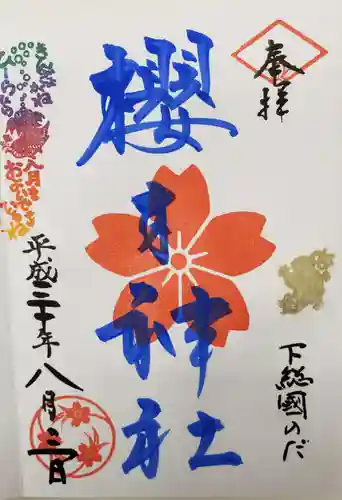 奉拝
下総國のだ
櫻木神社
平成三十年八月三日